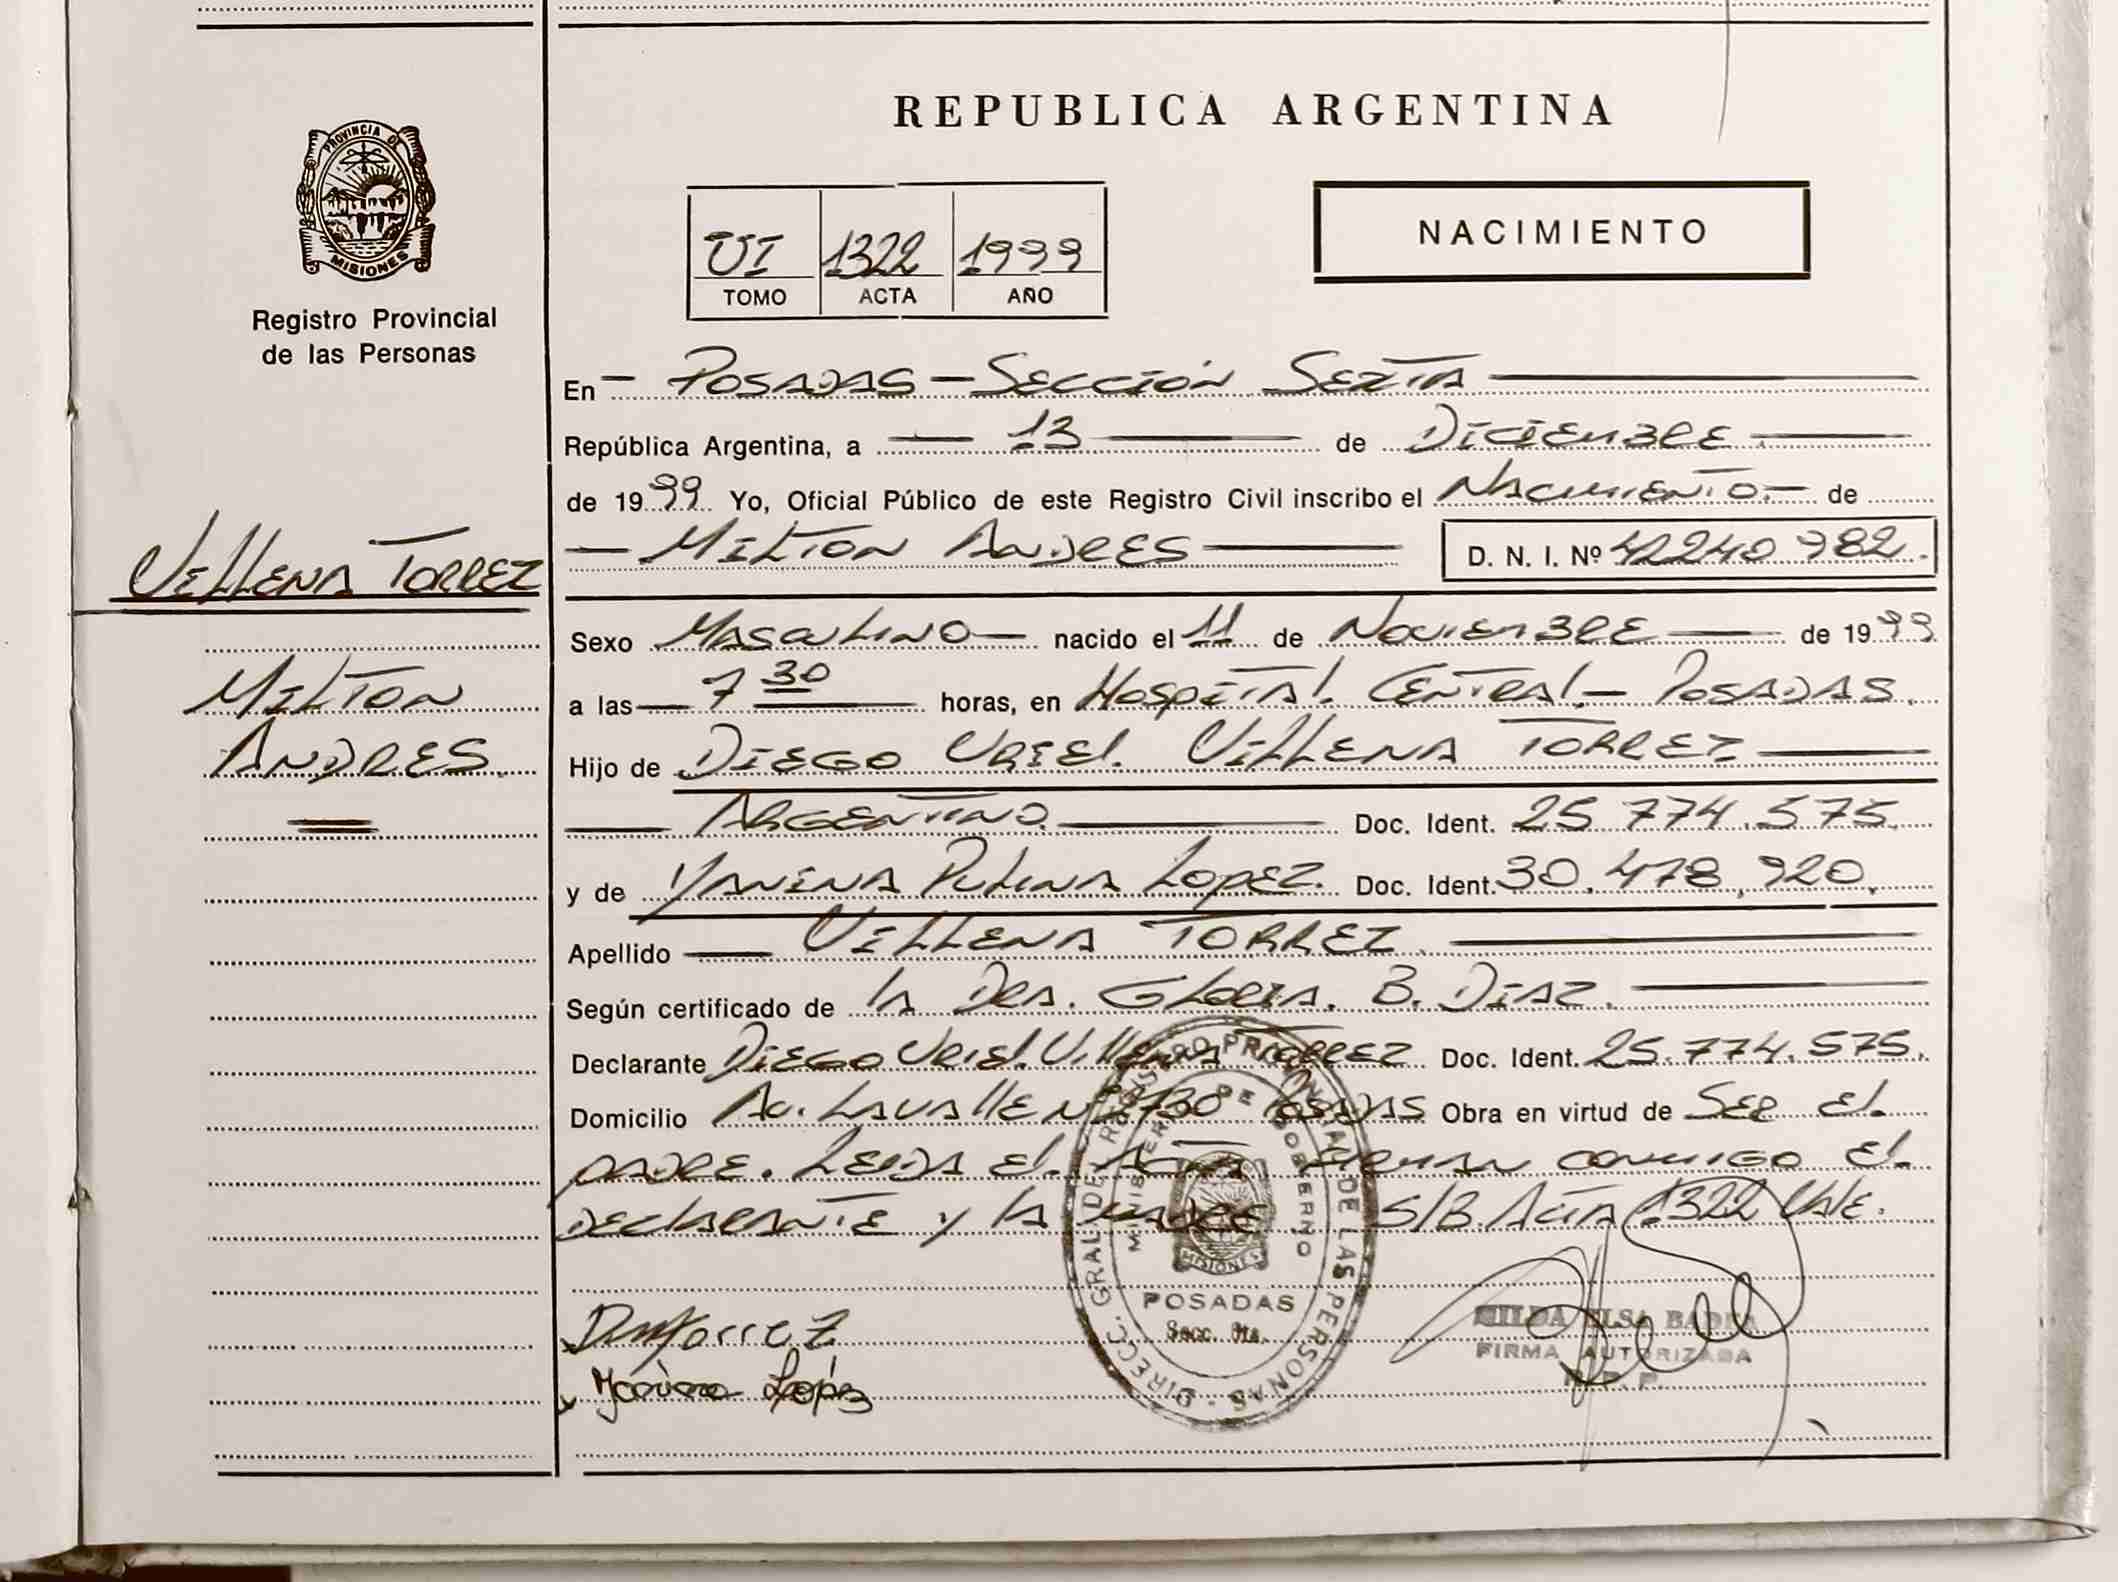 PROVINCIA DE
MISIONES
Registro Provincial
de las Personas
REPUBLICA ARGENTINA
VI 1322 1999
TOMO ACTA AÑO
NACIMIENTO
En — POSADAS — SECCIÓN SEXTA
República Argentina, a — 13 — de DICIEMBRE
de 1999 Yo, Oficial Público de este Registro Civil inscribo el NACIMIENTO.— de
— MILTON ANDRES — D. N. I. Nº 42240982.
VILLENA TORREZ
MILTON
ANDRES
Sexo MASCULINO — nacido el 11 de NOVIEMBRE — de 1999
a las — 7 30 — horas, en HOSPITAL CENTRAL — POSADAS.
Hijo de DIEGO URIEL VILLENA TORREZ —
— ARGENTINO. — Doc. Ident. 25.774.575.
y de YANINA LOPEZ. Doc. Ident. 30.478.920.
Apellido — VILLENA TORREZ. —
Según certificado de la DRA. GLORIA. B. DIAZ. —
Declarante DIEGO URIEL VILLENA TORREZ Doc. Ident. 25.774.575.
Domicilio AV. LAVALLE Nº POSADAS Obra en virtud de SER EL
PADRE. LEIDA EL ACTA FIRMAN CONMIGO EL
DECLARANTE y la MADRE S/B. ACTA 1322 VALE.
DIRECC. GRAL. DEL REGISTRO PROVINCIAL DE LAS PERSONAS
MINISTERIO DE GOBIERNO
MISIONES
POSADAS
Secc. 6ta.
Torrez
Yanina López
ELSA
FIRMA AUTORIZADA